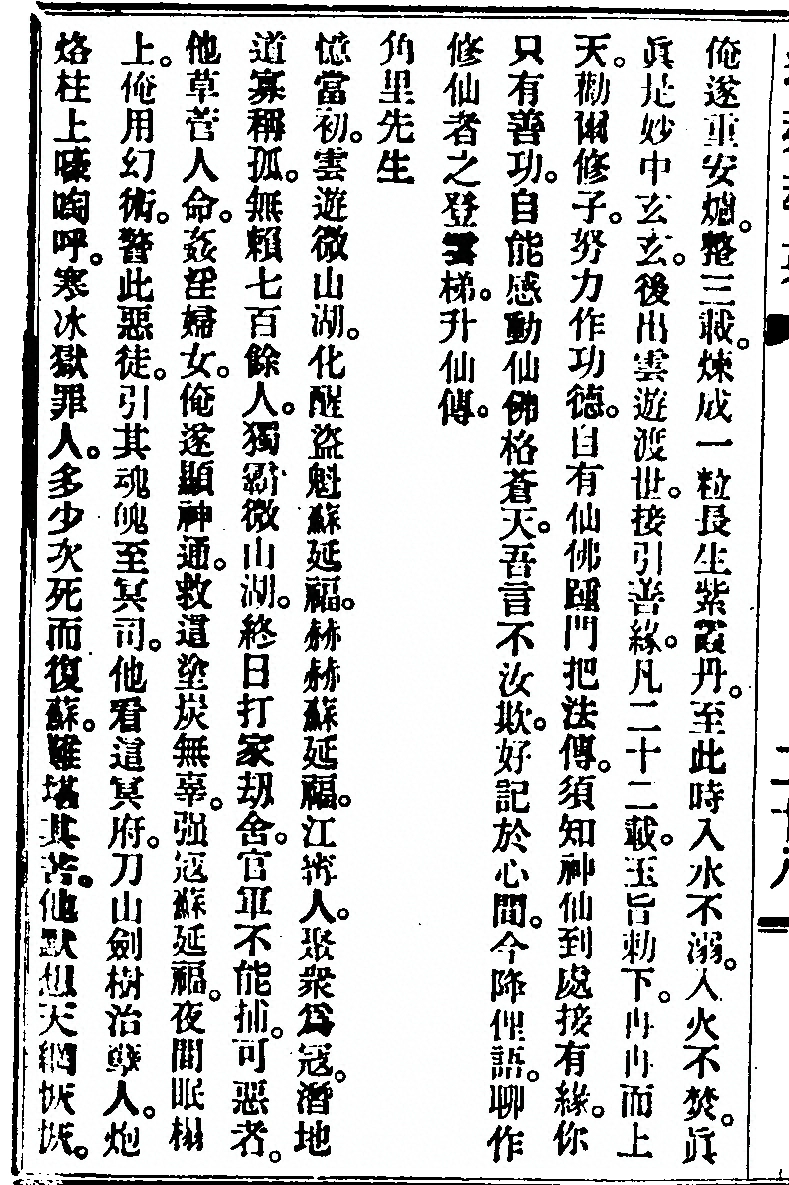 俺遂重安爐。整三載。煉成一粒長生紫霞丹。至此時入水不溺。入火不焚。眞
眞是妙中玄玄。後出雲遊渡世。接引善緣。凡二十二載。玉旨勅下。冉冉而上
天。勸爾修子。努力作功德。自有仙佛踵門把法傳。須知神仙到處接有緣。你
只有善功。自能感動仙佛格蒼天。吾言不汝欺。好記於心間。今降俚語。聊作
修仙者之登雲梯。升仙傳。
角里先生
憶當初。雲遊微山湖。化醒盜魁蘇延福。赫赫蘇延福。江甯人。聚衆爲寇。潛地
道寡稱孤。無賴七百餘人。獨霸微山湖。終日打家刧舍。官軍不能捕。可惡者。
他草菅人命。姦淫婦女。俺遂顯神通。救這塗炭無辜。强寇蘇延福。夜間眠榻
上。俺用幻術。警此惡徒。引其魂魄至冥司。他看這冥府。刀山劍樹治孽人。炮
烙柱上嚎啕呼。寒冰獄罪人。多少次死而復蘇。難堪其苦。他默想天網恢恢。
二十八